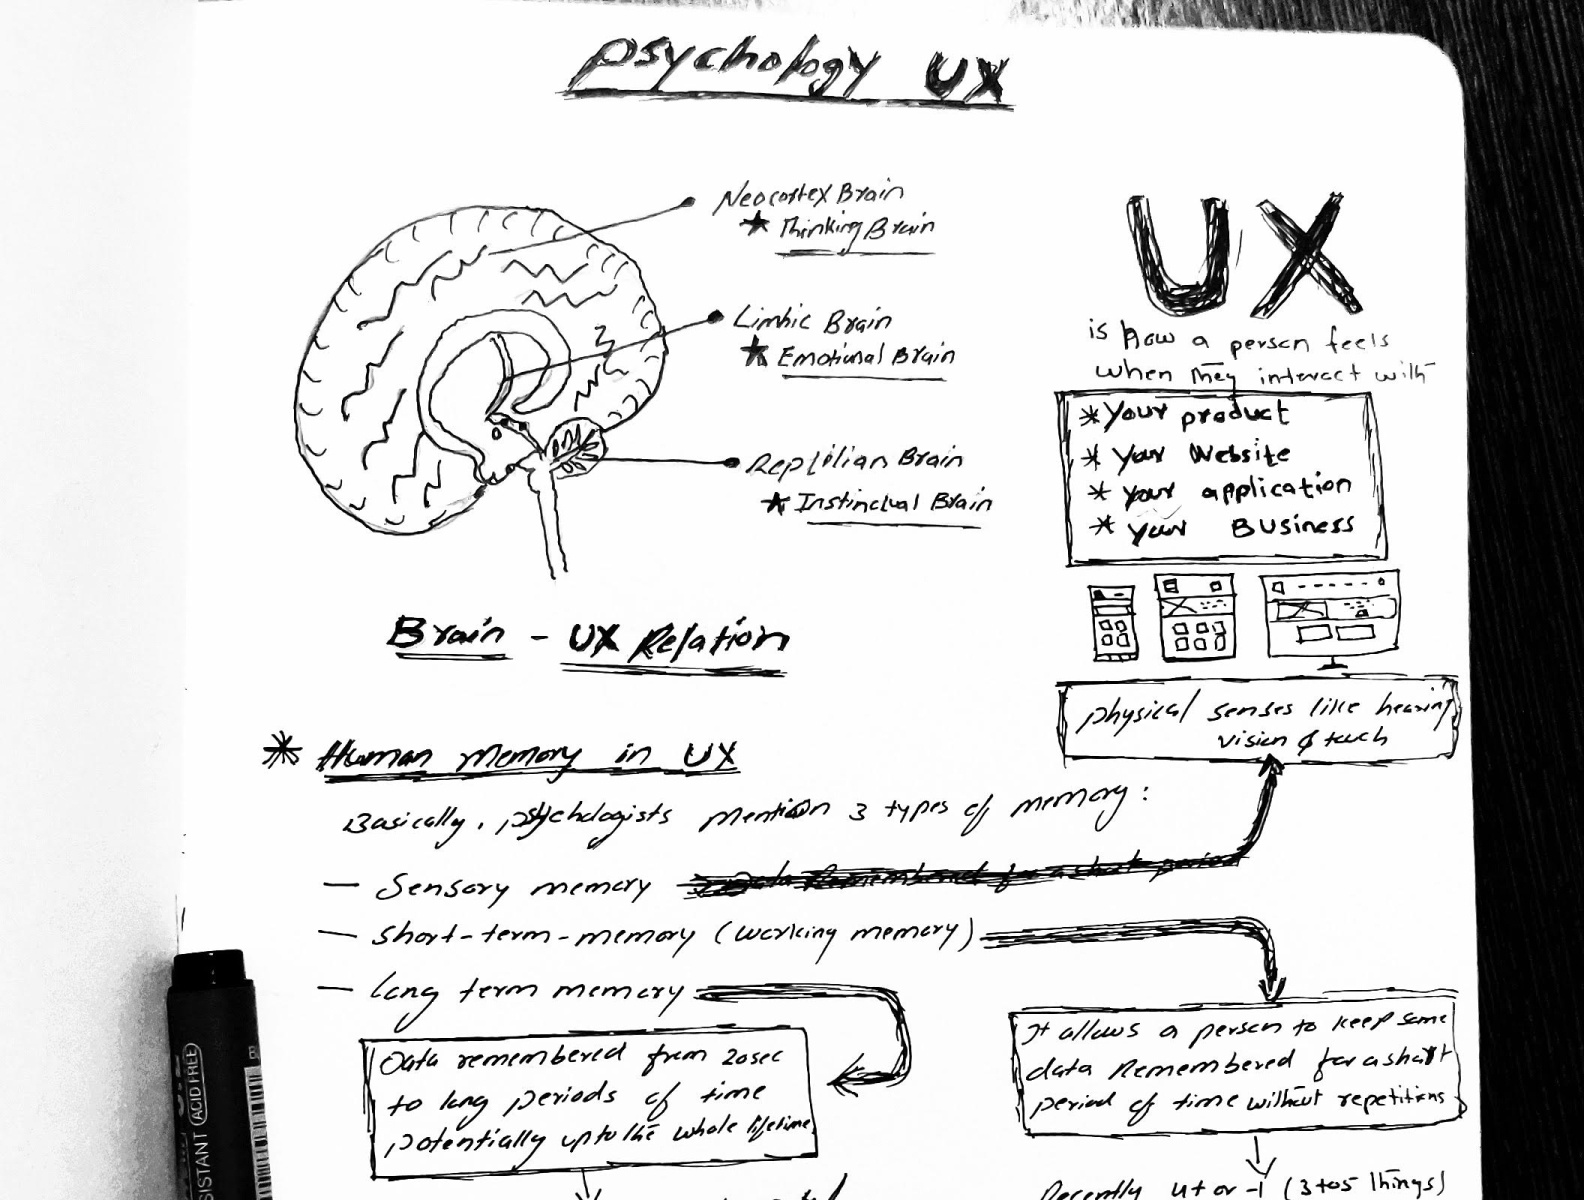 psychology UX
Neocortex Brain
★ Thinking Brain
Limbic Brain
★ Emotional Brain
Reptilian Brain
★ Instinctual Brain
Brain - UX Relation
UX
is how a person feels
when they interact with
* Your product
* Your Website
* Your application
* Your Business
physical senses like hearing
vision & touch
* Human memory in UX
Basically, psychologists mention 3 types of memory:
— Sensory memory
— short-term-memory (working memory)
— long term memory
Data remembered from 20sec
to long periods of time
potentially up to the whole lifetime
It allows a person to keep some
data Remembered for a short
period of time without repetitions
Recently 4+ or -1 (3 to 5 things)
ISTANT ACID FREE